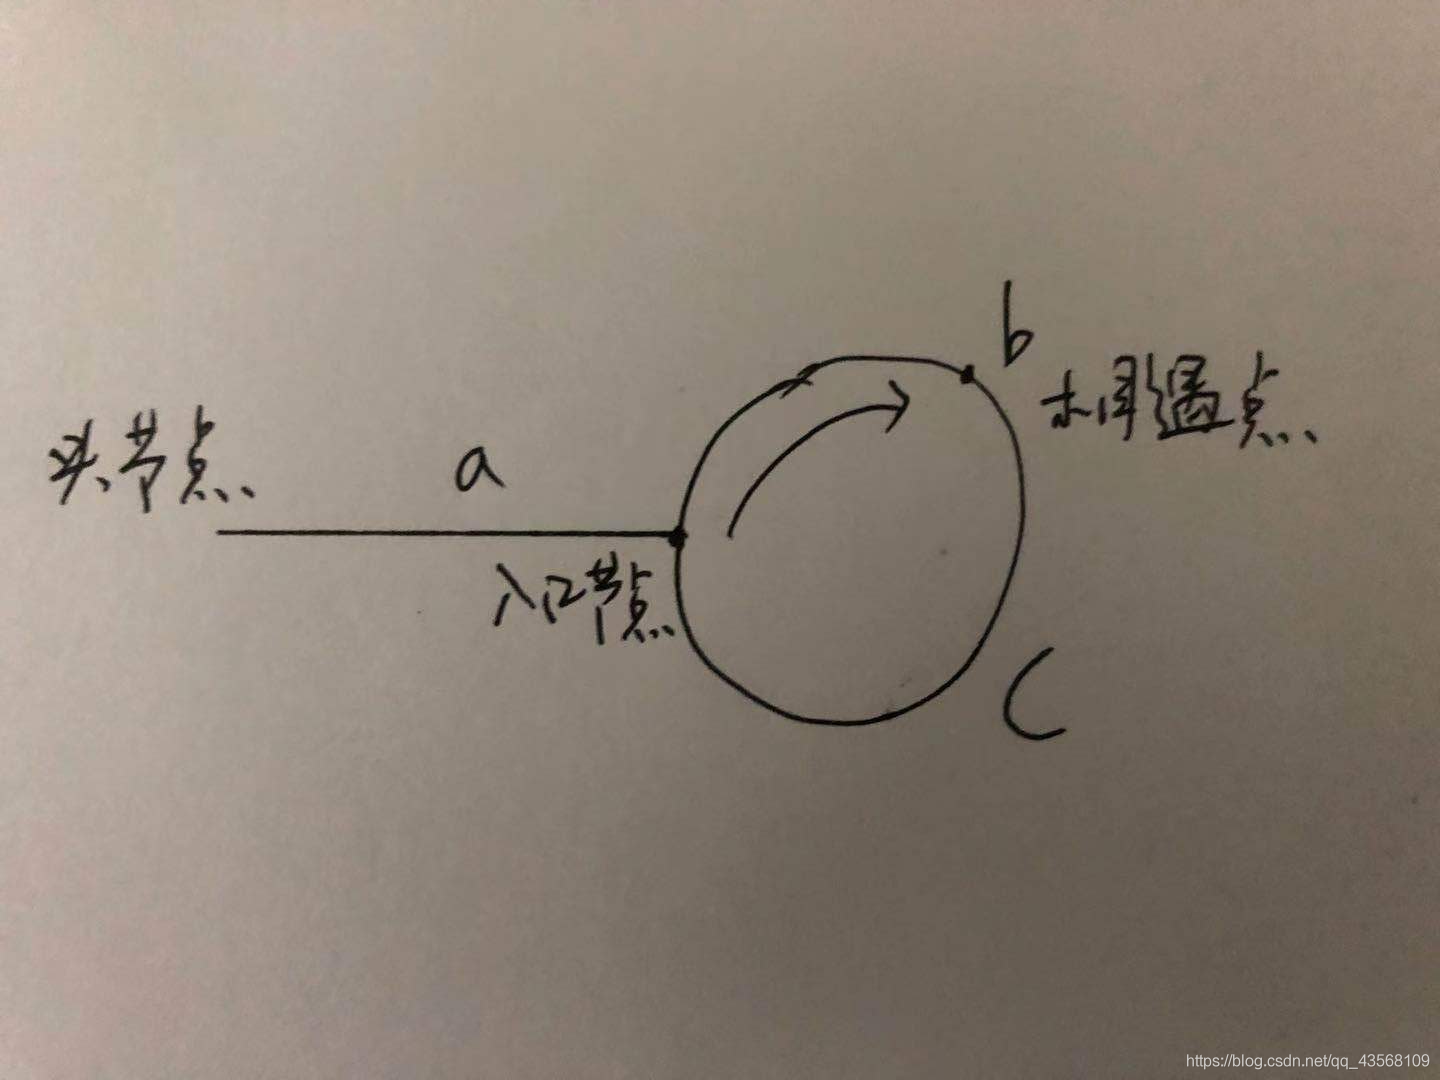 b
相遇点
头节点
a
入口节点
C
https://blog.csdn.net/qq_43568109